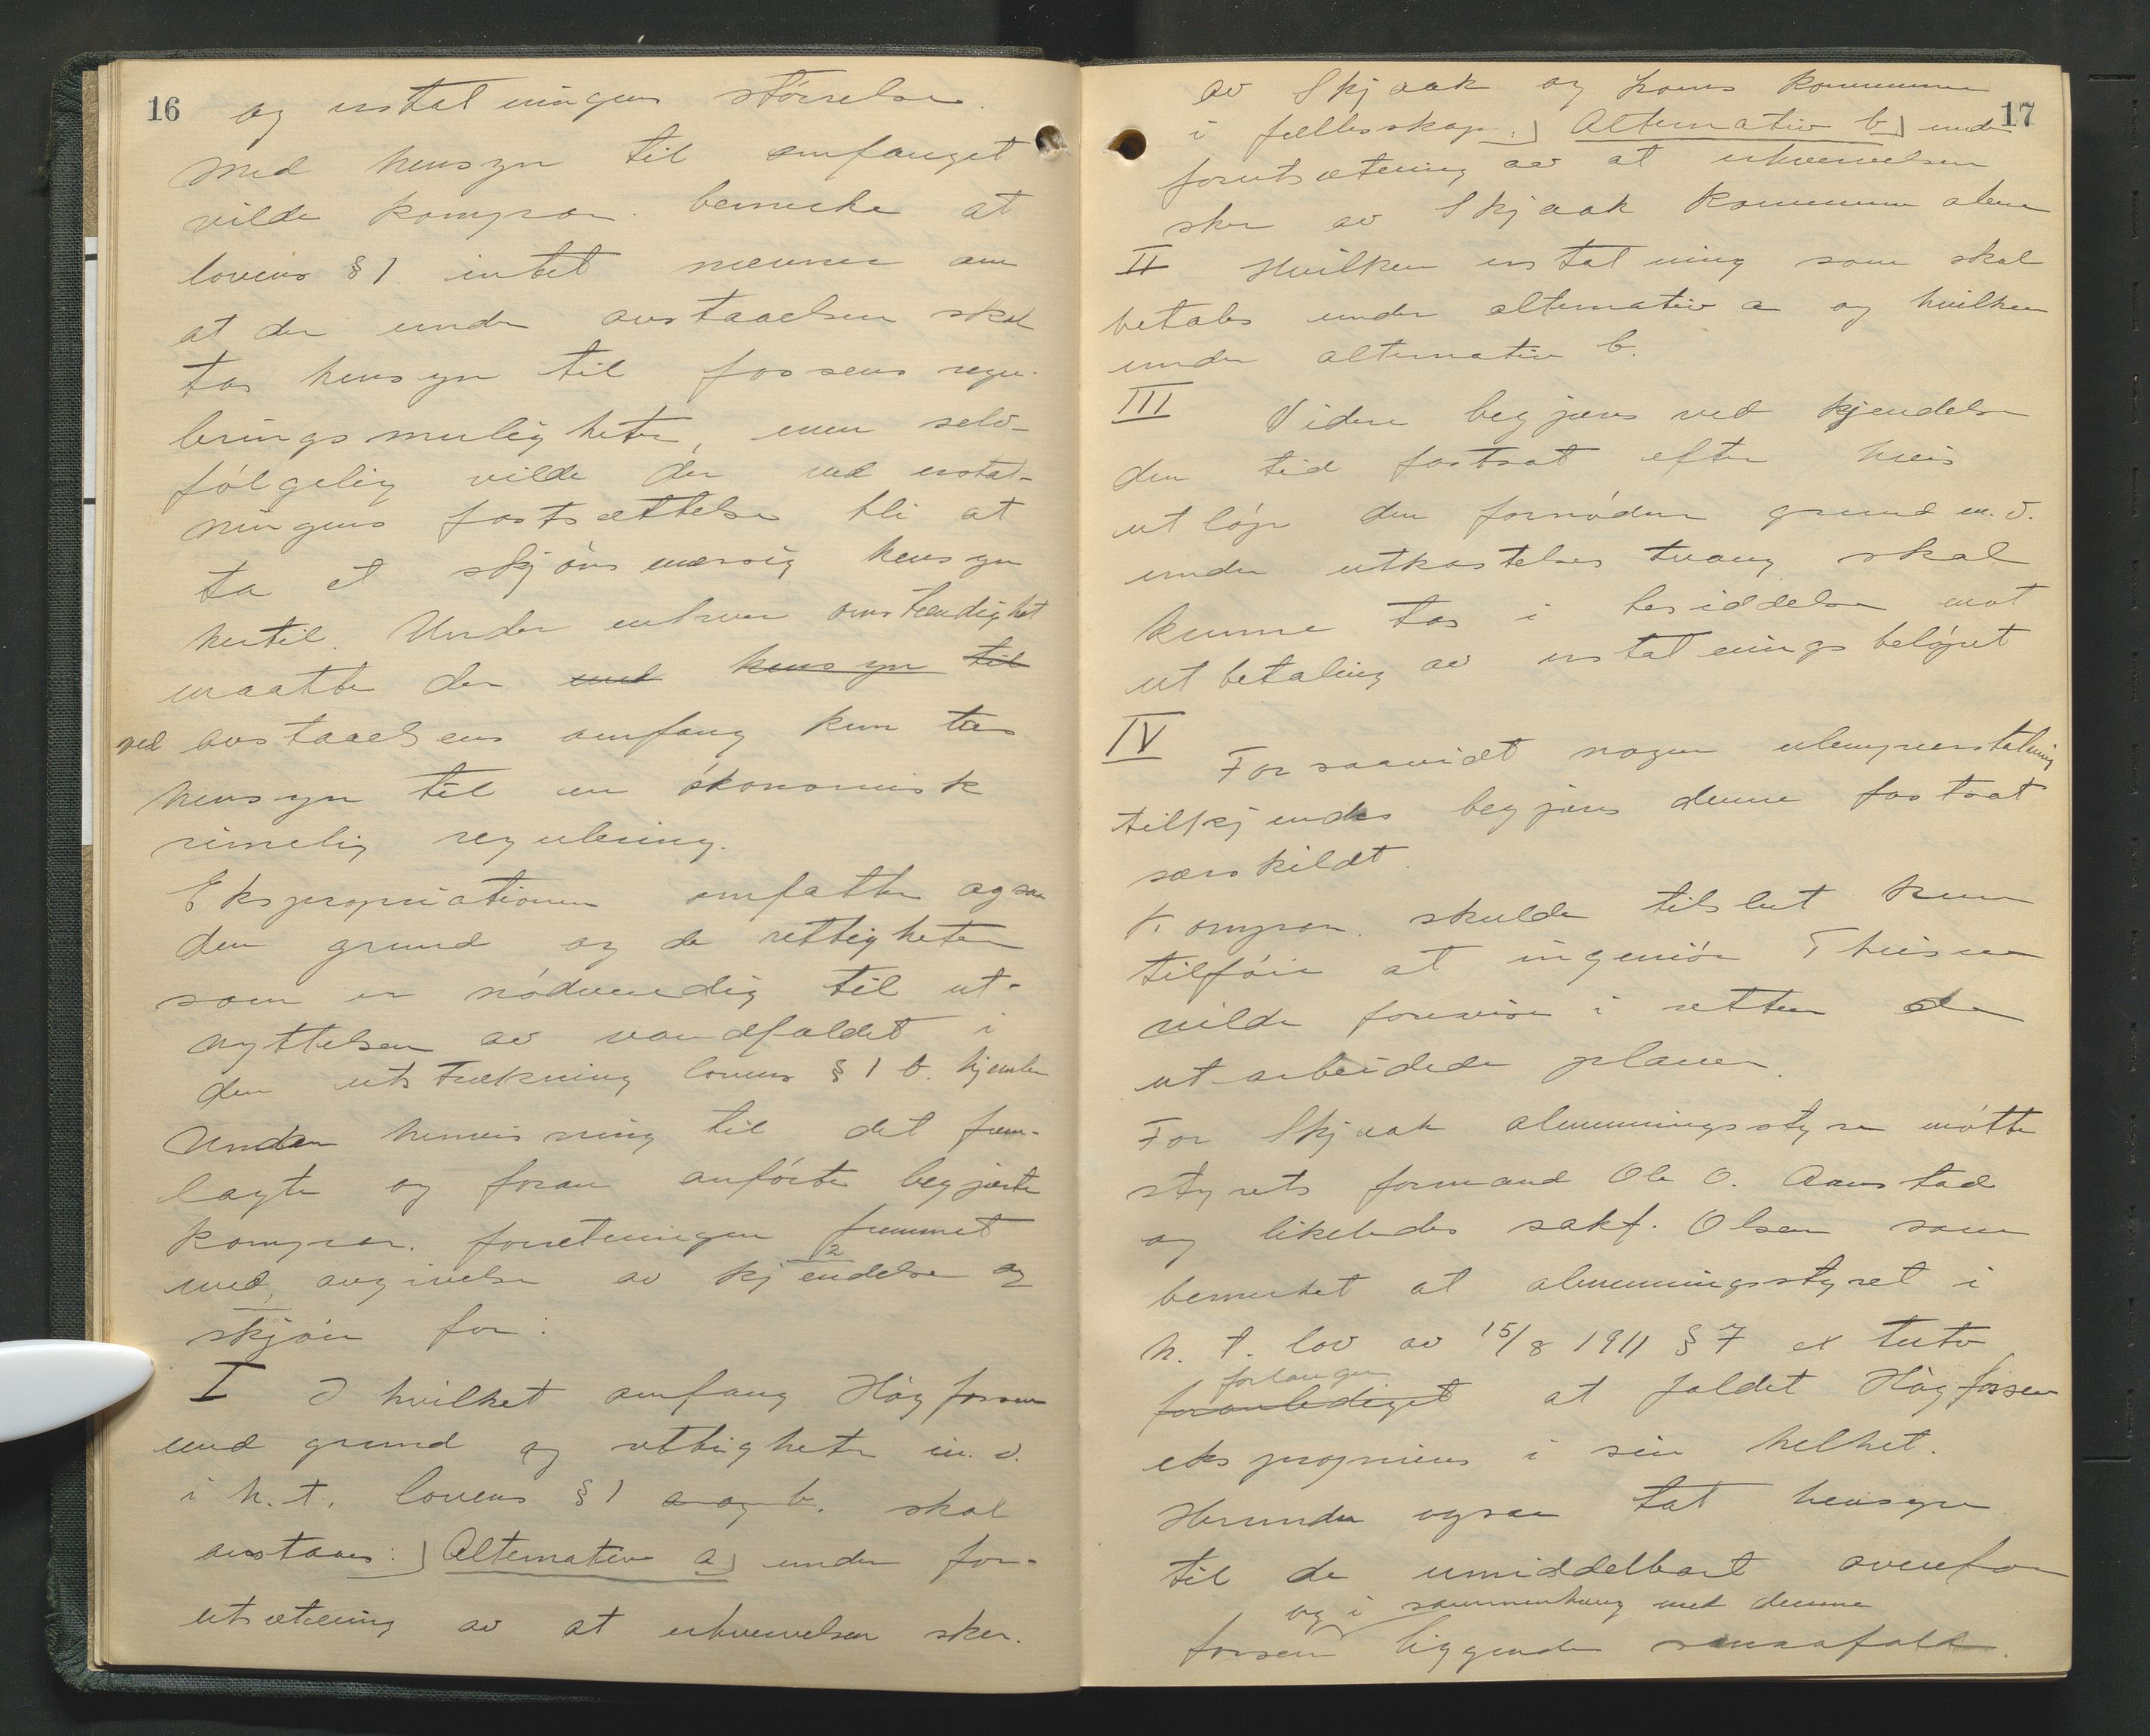 16
og erstatningens størrelse.
Med hensyn til omfanget
vilde kompar. bemerke at
lovens § 1 intet nævner om
at der under avstaaelsen skal
tas hensyn til fossens regu-
leringsmuligheter, men selv-
følgelig vilde der ved erstat-
ningens fastsættelse bli at
ta et skjønsmæssig hensyn
hertil. Under enhver omstændighet
maatte der med hensyn til
ved avstaaelsens omfang kun tas
hensyn til en økonomisk
rimelig regulering.
Ekspropriationen omfatter ogsaa
den grund og de rettigheter
som er nødvendig til ut-
nyttelsen av vandfaldet i
den utstrækning lovens § 1 b. hjemler
Under henvisning til det frem-
lagte og foran anførte begjærte
kompar. forretningen fremmet
med avgivelse av kjendelse og
skjøn for:
I I hvilket omfang Høgfossen
med grund og rettigheter m. v.
i h. t. lovens § 1 a og b. skal
avstaaes:) Alternativ a) under for-
utsætning av at erhvervelsen sker.
17
av Skjaak og Loms kommuner
i fællesskap:) Alternativ b) under
forutsætning av at erhvervelsen
sker av Skjaak kommune alene
II Hvilken erstatning som skal
betales under alternativ a og hvilken
under alternativ b.
III Videre begjæres ved kjendelse
den tid fastsat efter hvis
utløp den fornødne grund m. v.
under utkastelsestvang skal
kunne tas i besiddelse mot
utbetaling av erstatningsbeløpet
IV Forsaavidt nogen ulempeerstatning
tilkjendes begjæres denne fastsat
særskildt.
Kompar. skulde tilslut kun
tilføie at ingeniør Thiisen
vilde forevise i retten de
utarbeidede planer.
For Skjaak almenningsstyre møtte
styrets formand Ole O. Aanstad
og likeledes sakf. Olsen som
bemerket at almenningsstyret i
h. t. lov av 15/8 1911 § 7 ex tuto
forlanger
foranlediget at faldet Høgfossen
eksproprieres i sin helhet.
Herunder ogsaa tat hensyn
til de umiddelbart ovenfor
og i sammenhæng med denne
fossen liggende smaafald.